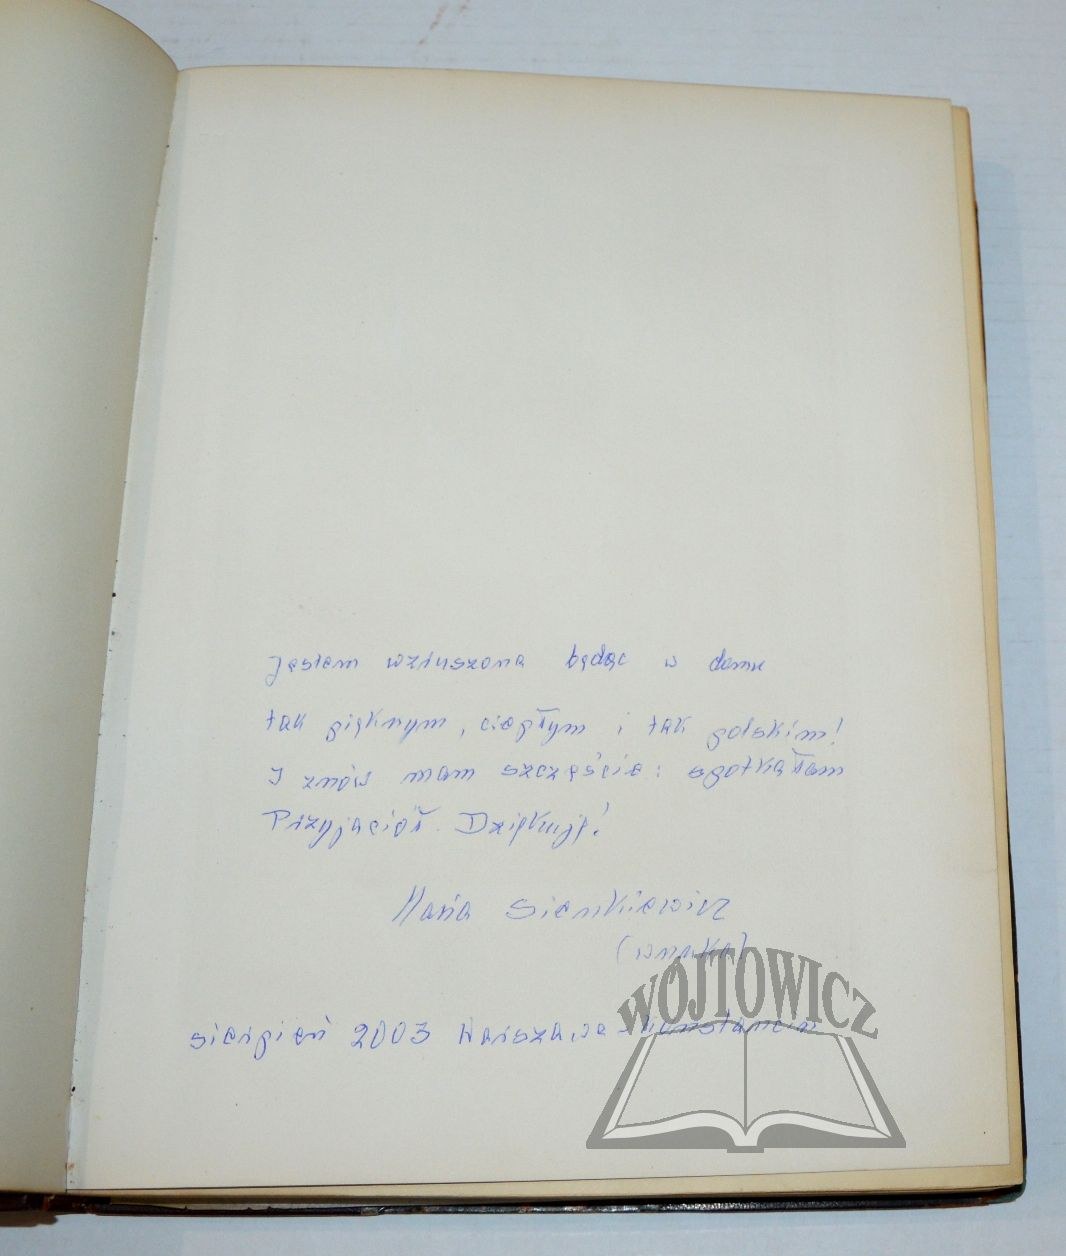 Jestem wzruszona będąc w domu
tak pięknym, ciepłym i tak polskim!
I znów mam szczęście: spotkałam
Przyjaciół. Dziękuję!
Maria Sienkiewicz
(wnuka)
sierpień 2003 Warszawa-Konstancin
WÓJTOWICZ